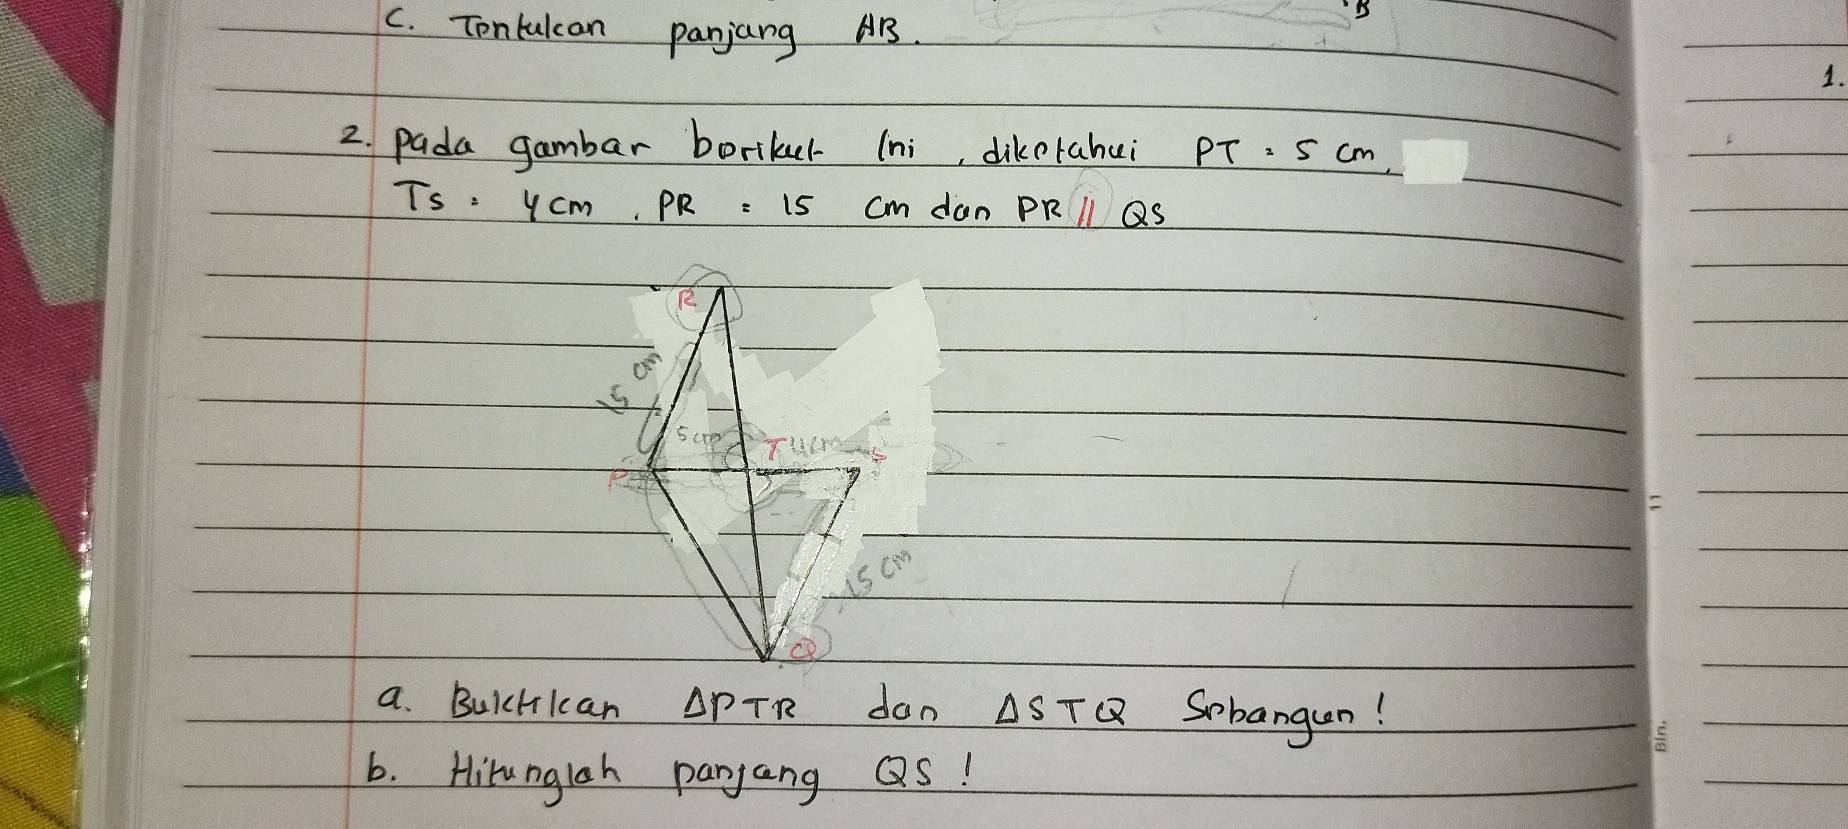 C. Tentukan panjang AB.
B
1.
2. Pada gambar berikut ini, diketahui PT = 5 cm,
TS = 4 cm, PR = 15 cm dan PR // QS
R
15 cm
5 cm
T 4 cm S
P
15 cm
Q
11
a. Buktikan ΔPTR dan ΔSTQ Sebangun!
Bln.
b. Hitunglah panjang QS!